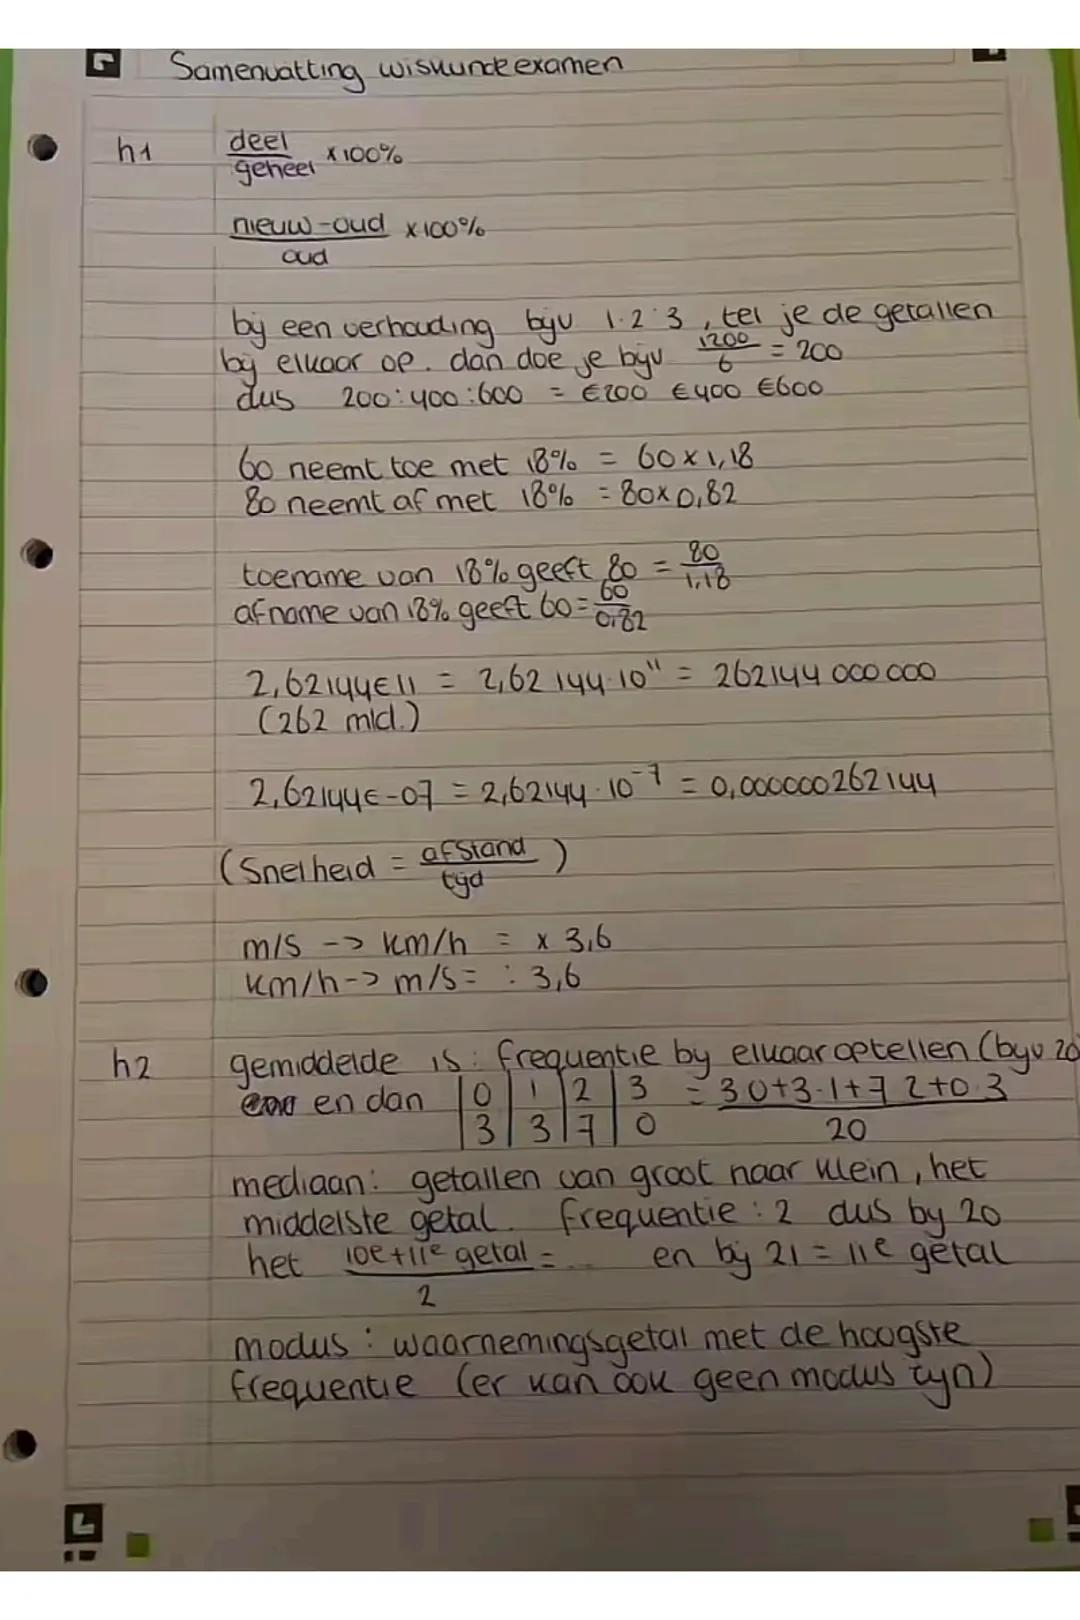 Samenvatting wiskunde examen
h1 deel
geheel x 100%
nieuw - oud x 100%
oud
bij een verhouding bijv 1:2:3, tel je de getallen
bij elkaar op. dan doe je bijv 1200/6 = 200
dus 200:400:600 = €200 €400 €600
60 neemt toe met 18% = 60 x 1,18
80 neemt af met 18% = 80 x 0,82
toename van 18% geeft 80 = 80/1,18
afname van 18% geeft 60 = 60/0,82
2,62144E11 = 2,62144·10¹¹ = 262144 000 000
(262 mld.)
2,62144E-07 = 2,62144·10⁻⁷ = 0,000000262144
(Snelheid = afstand/tijd)
m/s -> km/h = x 3,6
km/h -> m/s = : 3,6
h2 gemiddelde is: frequentie bij elkaar optellen (bijv 20
en dan |0|1|2|3 = 3·0+3·1+7·2+0·3
|3|3|7|0 20
mediaan: getallen van groot naar klein, het
middelste getal. frequentie : 2 dus bij 20
het 10e+11e getal = ... en bij 21 = 11e getal
2
modus: waarnemingsgetal met de hoogste
frequentie (er kan ook geen modus zijn)